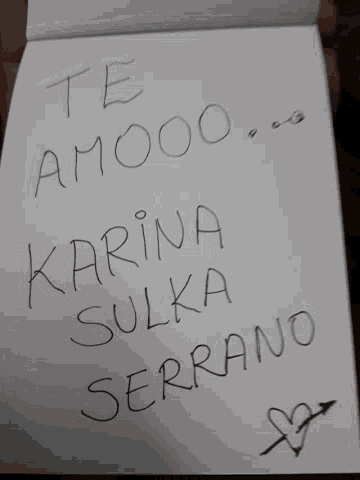 TE
AMOOO...
KARINA
SULKA
SERRANO